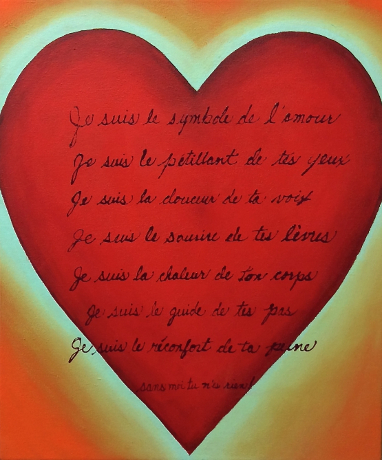 Je suis le symbole de l'amour
Je suis le pétillant de tes yeux
Je suis la douceur de ta voix
Je suis le sourire de tes lèvres
Je suis la chaleur de ton corps
Je suis le guide de tes pas
Je suis le réconfort de ta peine
sans moi tu n'es rien!